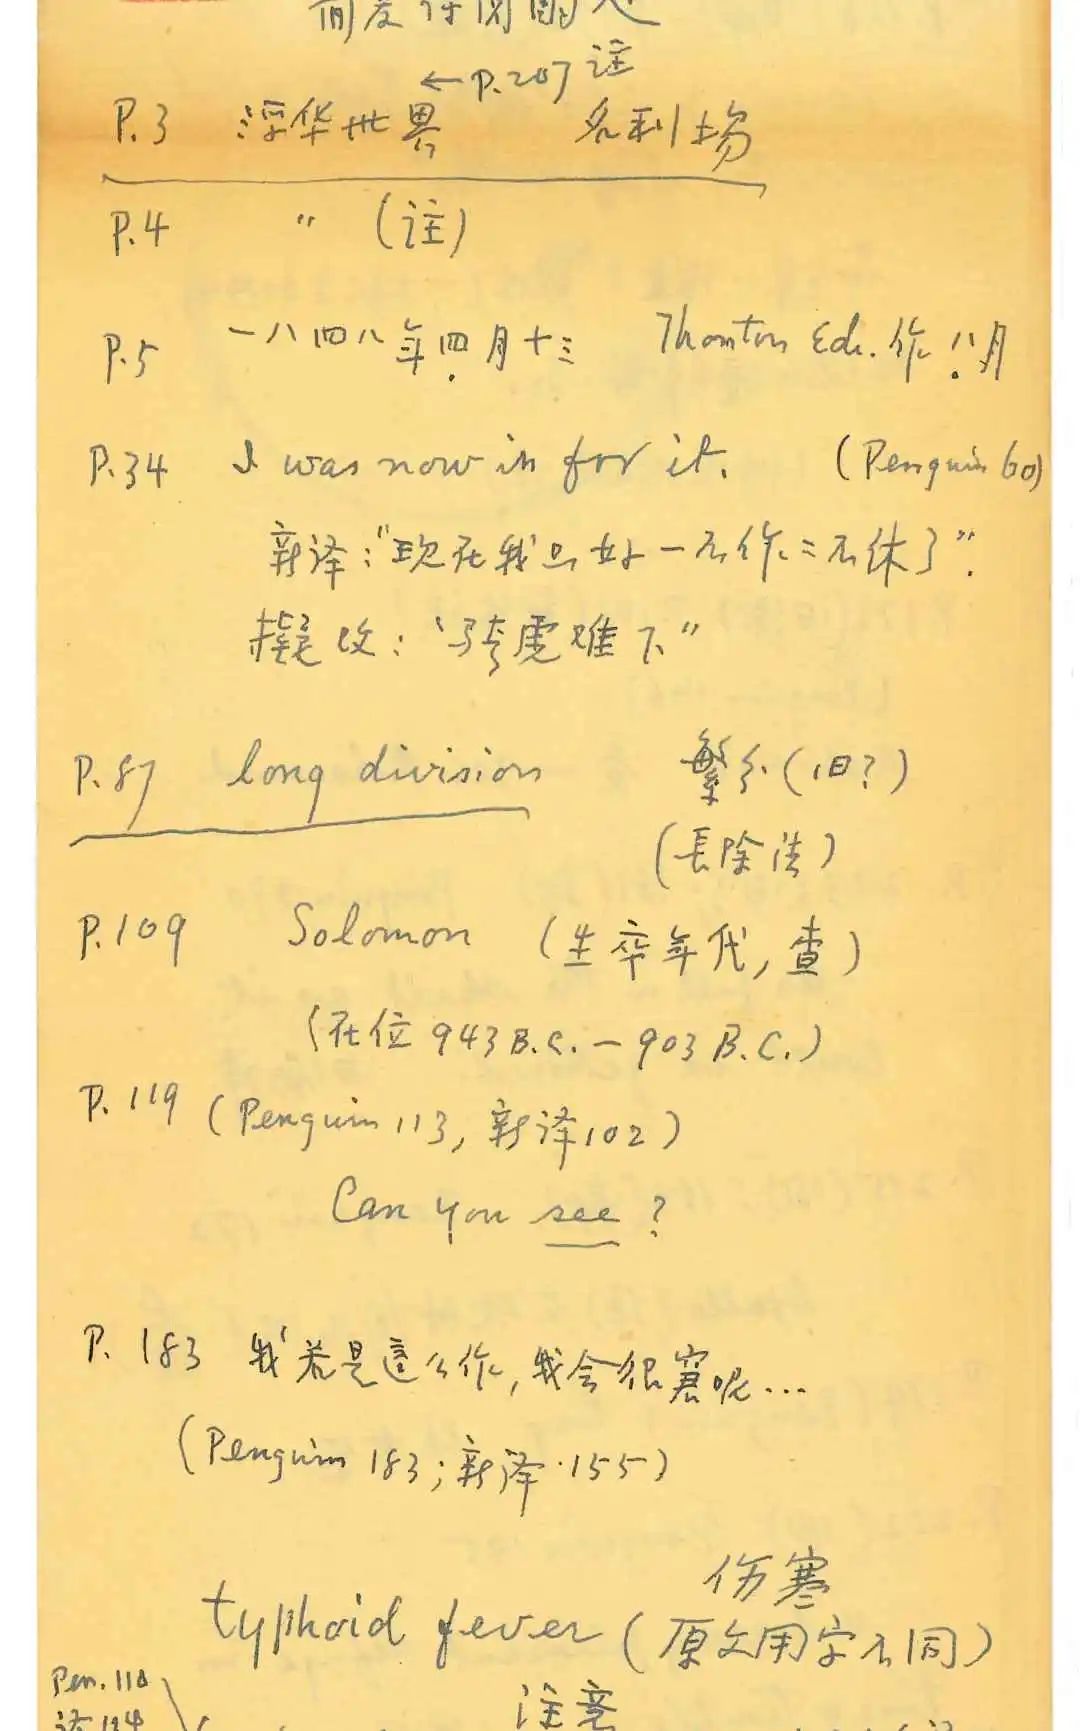 ←P.207 註
P.3 浮华世界 名利场
P.4 " (註)
P.5 一八四八年四月十三 Thornton Edn. 作八月
P.34 I was now in for it. (Penguin 60)
新译:"现在我只好一不作二不休了".
擬改:"骑虎难下"
P.87 long division 繁分(旧?)
(長除法)
P.109 Solomon (生卒年代,查)
(在位 943 B.C. — 903 B.C.)
P. 119 (Penguin 113, 新译102)
Can you see ?
P. 183 我若是這么作,我会很窘呢...
(Penguin 183; 新译·155)
伤寒
typhoid fever (原文用字不同)
Pen. 110
注意